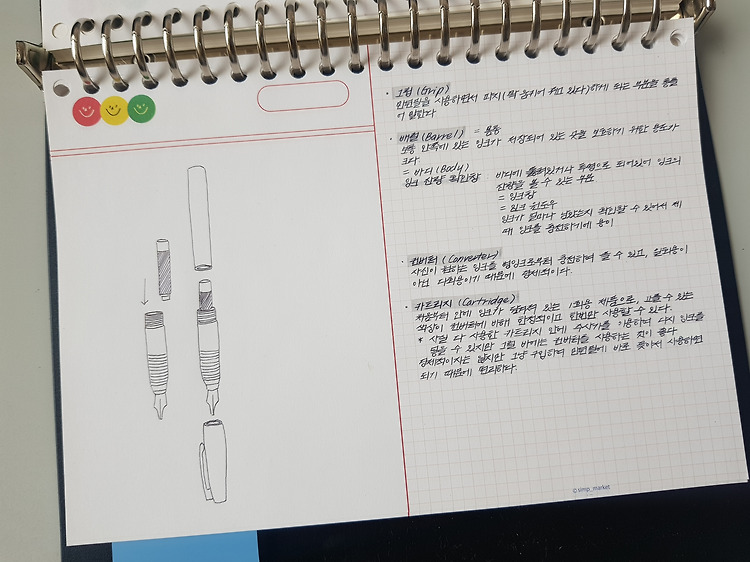 · 그립 (Grip)
만년필을 사용하면서 파지(꽉 움키어 쥐고 있다)하게 되는 부분을 통틀
어 말한다
· 배럴 (Barrel) = 몸통
몸통 안쪽에 있는 잉크가 저장되어 있는 곳을 보호하기 위한 용도가
크다
= 바디 (Body)
잉크 잔량 확인창
바디에 뚫려있거나 투명으로 되어있어 잉크의
잔량을 볼 수 있는 부분
= 잉크창
= 잉크 윈도우
잉크가 얼마나 남았는지 확인할 수 있어서 제
때 잉크를 충전하기에 용이
· 컨버터 (Converter)
자신이 원하는 잉크를 병잉크로부터 충전하여 쓸 수 있고, 일회용이
아닌 다회용이기 때문에 경제적이다.
· 카트리지 (Cartridge)
처음부터 안에 잉크가 담겨져 있는 1회용 제품으로, 고를 수 있는
색상이 컨버터에 비해 한정적이고 한번만 사용할 수 있다.
* 사실 다 사용한 카트리지 안에 주사기를 이용하여 다시 잉크를
담을 수 있지만 그럴 바에는 컨버터를 사용하는 것이 좋다
경제적이지는 않지만 그냥 구입하여 만년필에 바로 꽂아서 사용하면
되기 때문에 편리하다.
© vimp_market